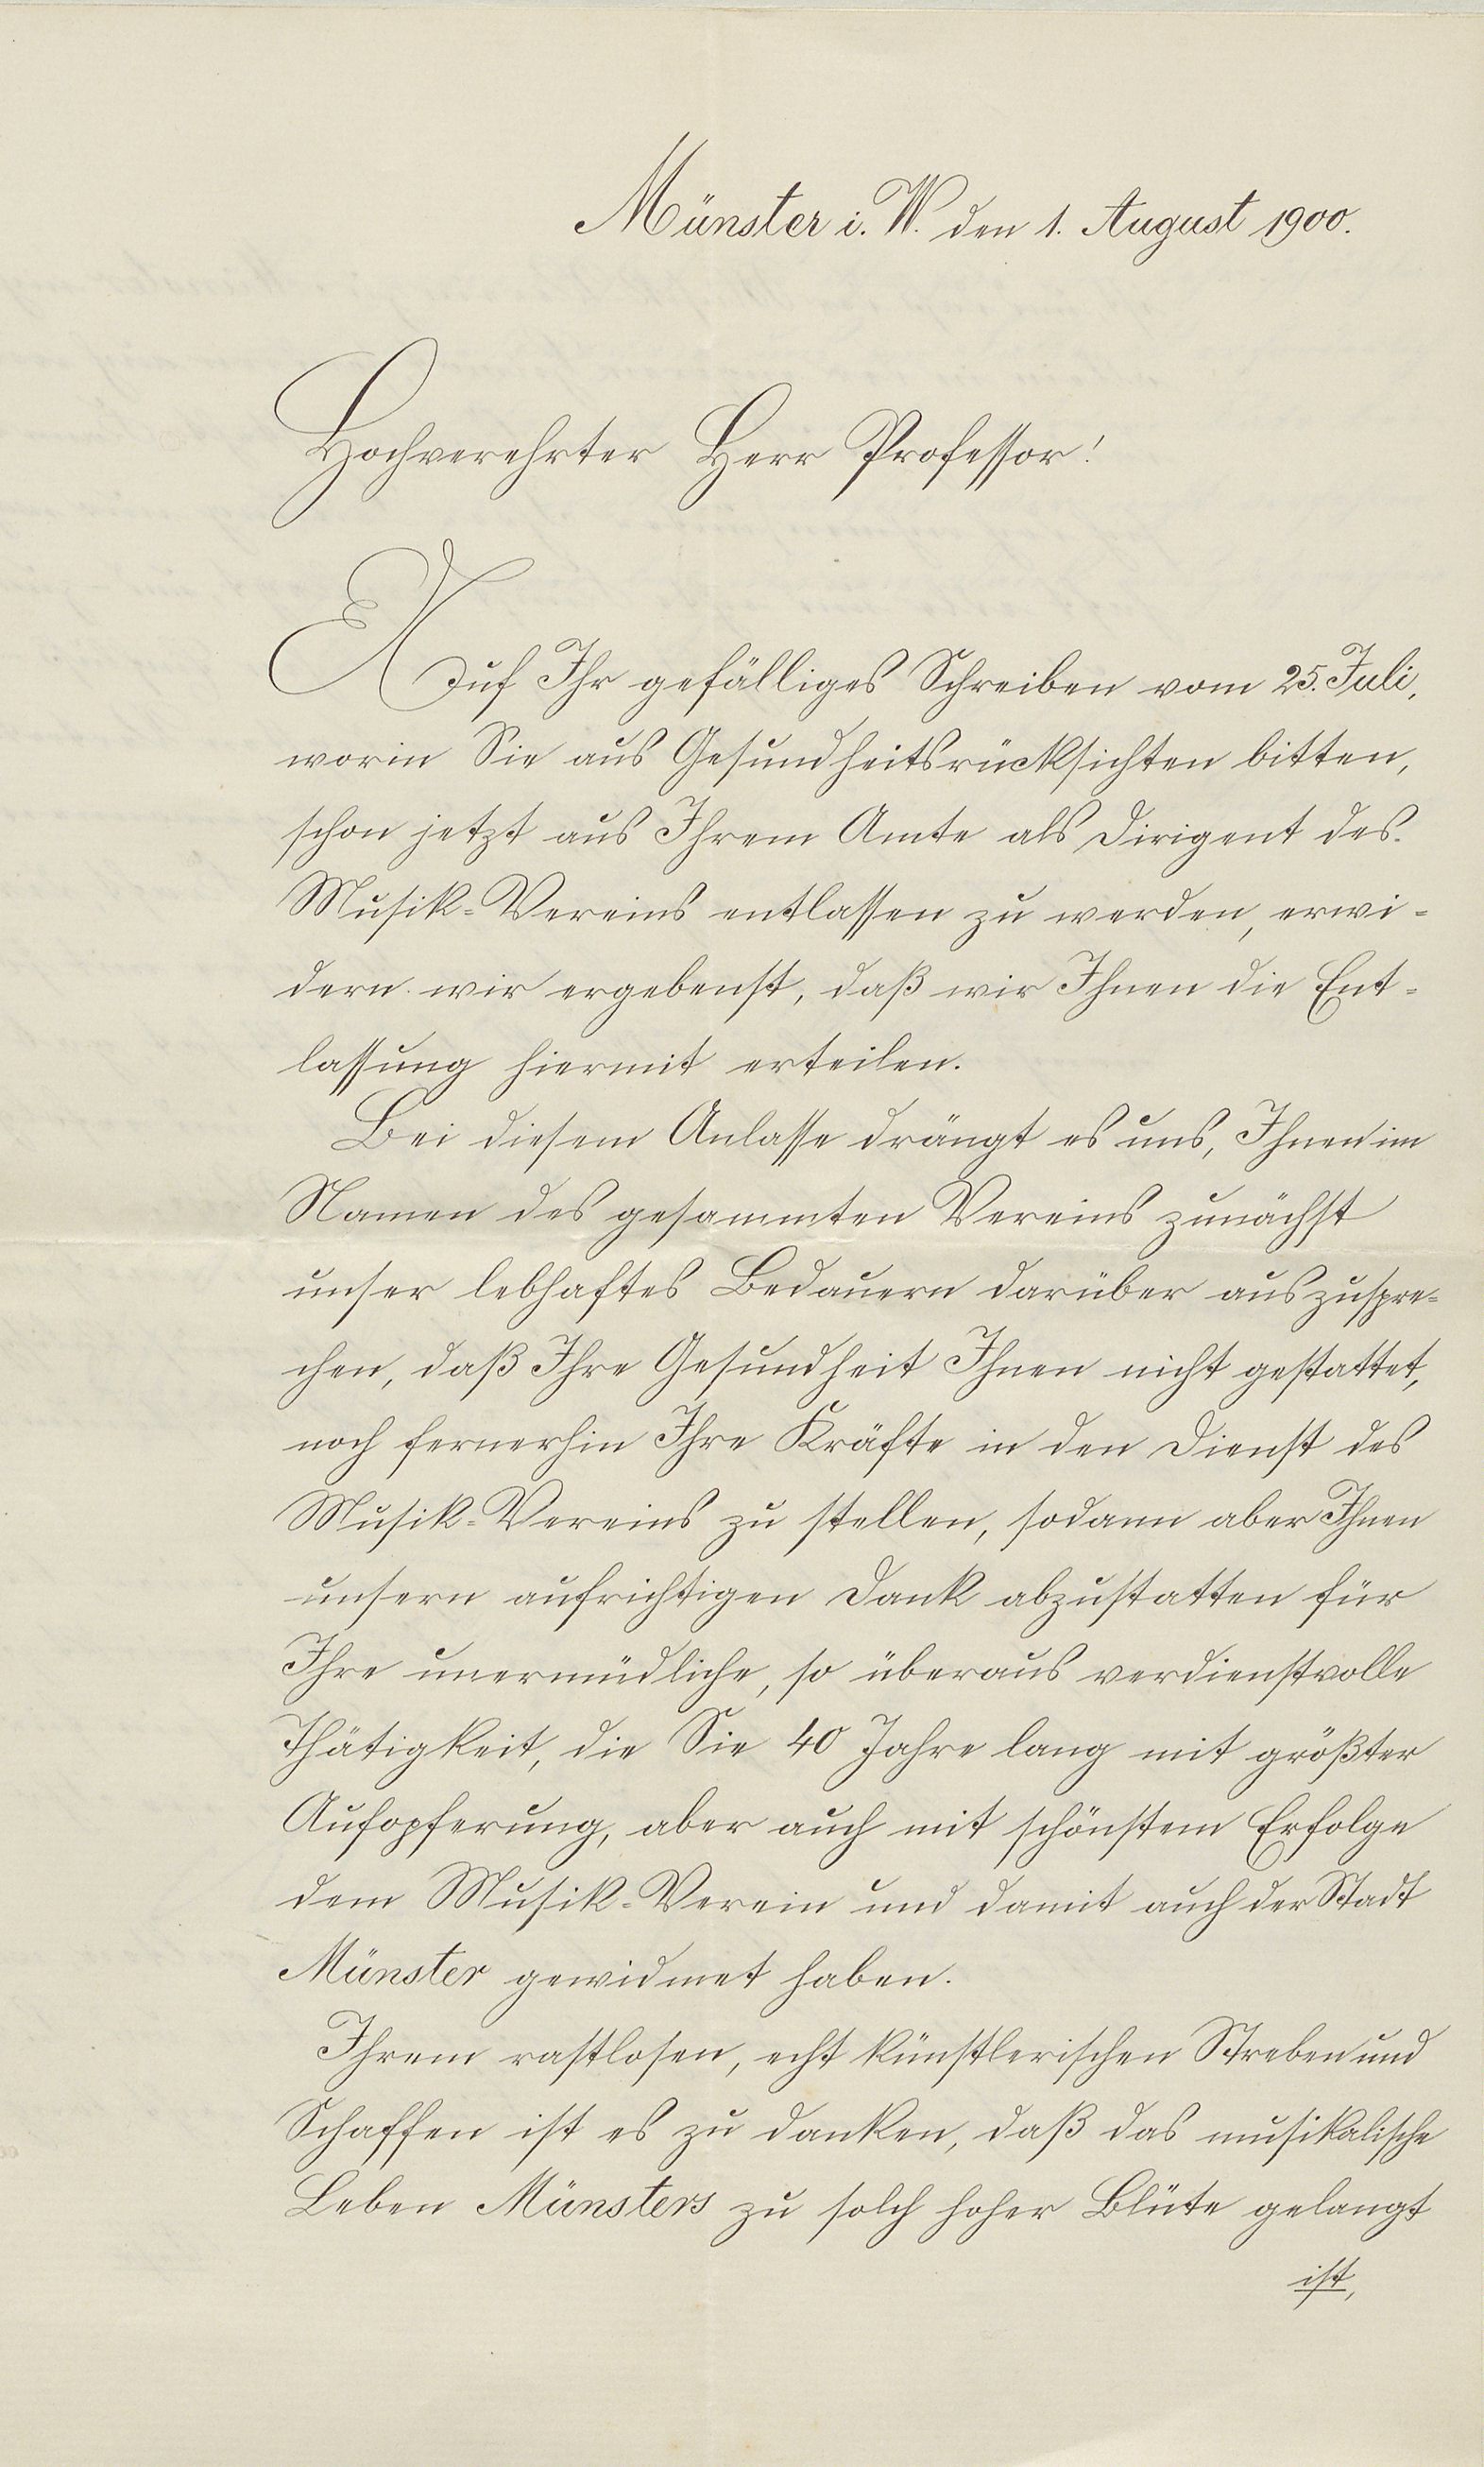 Münster i. W. den 1. August 1900.
Hochverehrter Herr Professor!
Auf Ihr gefälliges Schreiben vom 25. Juli,
worin Sie aus Gesundheitsrücksichten bitten,
schon jetzt aus Ihrem Amte als Dirigent des
Musik-Vereins entlassen zu werden, erwi-
dern wir ergebenst, daß wir Ihnen die Ent-
lassung hiermit erteilen.
Bei diesem Anlasse drängt es uns, Ihnen im
Namen des gesammten Vereins zunächst
unser lebhaftes Bedauern darüber auszuspre-
chen, daß Ihre Gesundheit Ihnen nicht gestattet,
noch fernerhin Ihre Kräfte in den Dienst des
Musik-Vereins zu stellen, sodann aber Ihnen
unsern aufrichtigen Dank abzustatten für
Ihre unermüdliche, so überaus verdienstvolle
Thätigkeit, die Sie 40 Jahre lang mit größter
Aufopferung, aber auch mit schönstem Erfolge
dem Musik-Verein und damit auch der Stadt
Münster gewidmet haben.
Ihrem rastlosen, echt künstlerischen Streben und
Schaffen ist es zu danken, daß das musikalische
Leben Münsters zu solch hoher Blüte gelangt
ist,